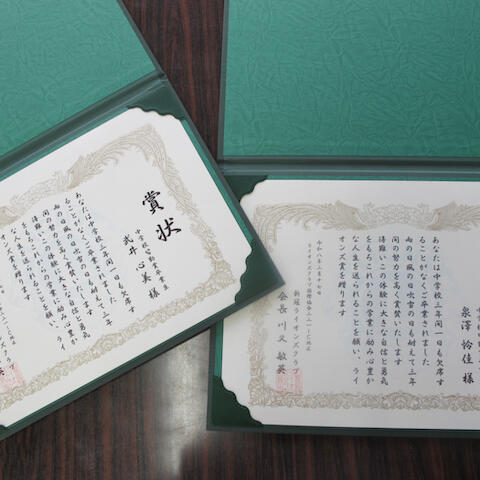 賞状
中学校皆勤卒業生
武井 心美 様
あなたは中学校三年間一日も欠席す
ることがなくご卒業されました
雨の日風の日吹雪の日も耐えて三年
間の努力を高く賞賛いたします
得難いこの体験に大きな自信と勇気
をもちこれからの学業に励み心豊か
な人生を送られることを願い、ライ
オンズ賞を贈ります
泉澤 怜佳 様
あなたは中学校三年間一日も欠席す
ることがなくご卒業されました
雨の日風の日吹雪の日も耐えて三年
間の努力を高く賞賛いたします
得難いこの体験に大きな自信と勇気
をもちこれからの学業に励み心豊か
な人生を送られることを願い、ライ
オンズ賞を贈ります
新冠ライオンズクラブ
会長 川又 敏英